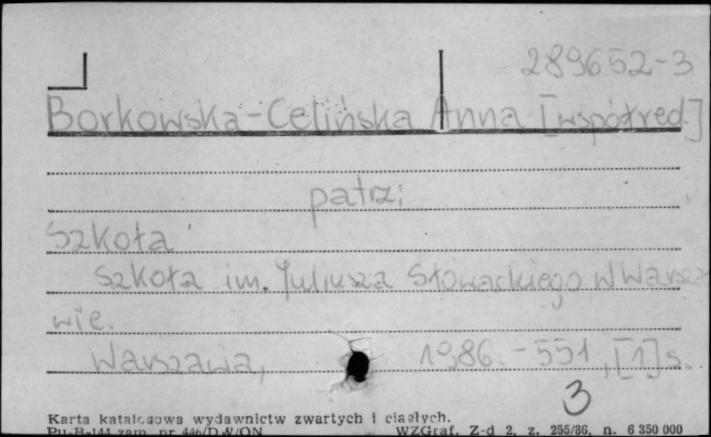 289652-3
Borkowska-Celińska Anna [współred.]
patrz:
Szkoła
Szkoła im. Juliusza Słowackiego w Warsza
wie.
Warszawa, 1986. - 551, [1] s.
3
Karta katalogowa wydawnictw zwartych i ciągłych.
Pu-B-144 zam. nr 446/D W/ON WZGraf. Z-d 2, z. 255/86, n. 6 350 000